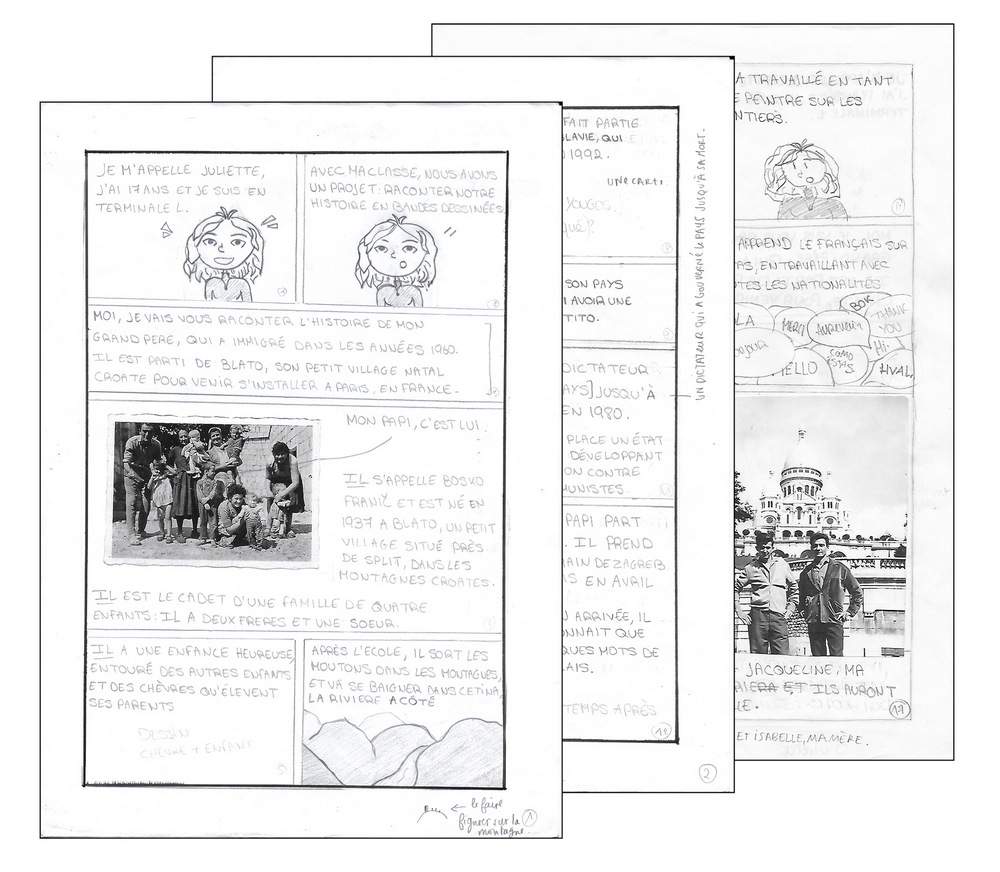 JE M'APPELLE JULIETTE,
J'AI 17 ANS ET JE SUIS EN
TERMINALE L.
AVEC MA CLASSE, NOUS AVONS
UN PROJET: RACONTER NOTRE
HISTOIRE EN BANDES DESSINÉES
MOI, JE VAIS VOUS RACONTER L'HISTOIRE DE MON
GRAND PERE, QUI A IMMIGRÉ DANS LES ANNÉES 1960.
IL EST PARTI DE BLATO, SON PETIT VILLAGE NATAL
CROATE POUR VENIR S'INSTALLER A PARIS, EN FRANCE.
MON PAPI, C'EST LUI.
IL S'APPELLE BOSKO
FRANIĆ ET EST NÉ EN
1937 A BLATO, UN PETIT
VILLAGE SITUÉ PRÈS
DE SPLIT, DANS LES
MONTAGNES CROATES.
IL EST LE CADET D'UNE FAMILLE DE QUATRE
ENFANTS: IL A DEUX FRERES ET UNE SOEUR.
IL A UNE ENFANCE HEUREUSE,
ENTOURÉ DES AUTRES ENFANTS
ET DES CHÈVRES QU'ÉLEVENT
SES PARENTS
DESSIN
CHEVRE + ENFANT
APRÈS L'ECOLE, IL SORT LES
MOUTONS DANS LES MONTAGNES,
ET VA SE BAIGNER DANS CETINA,
LA RIVIERE A CÔTÉ
← le faire
figurer sur la
montagne.
1
FAIT PARTIE
LAVIE, QUI
1992.
UNE CARTE
YOUGOS
qué?
SON PAYS
I AVOIR UNE
TITO.
DICTATEUR
AYS] JUSQU'À
EN 1980.
UN DICTATEUR QUI A GOUVERNÉ LE PAYS JUSQU'À SA MORT.
PLACE UN ÉTAT
DÉVELOPPANT
ON CONTRE
MUNISTES
PAPI PART
. IL PREND
AIN DE ZAGREB
IS EN AVRIL
N ARRIVÉE, IL
NNAIT QUE
QUES MOTS DE
AIS.
TEMPS APRÈS
2
A TRAVAILLÉ EN TANT
E PEINTRE SUR LES
NTIERS.
APPREND LE FRANÇAIS SUR
AS, EN TRAVAILLANT AVEC
UTES LES NATIONALITÉS
LA
MERCI
Aufwiedersehen
BOK
THANK
YOU
Hi
onjour
HELLO
COMO
ESTAS
HVALA
JACQUELINE, MA
RIERA ET ILS AURONT
LE.
17
ET ISABELLE, MA MÈRE.